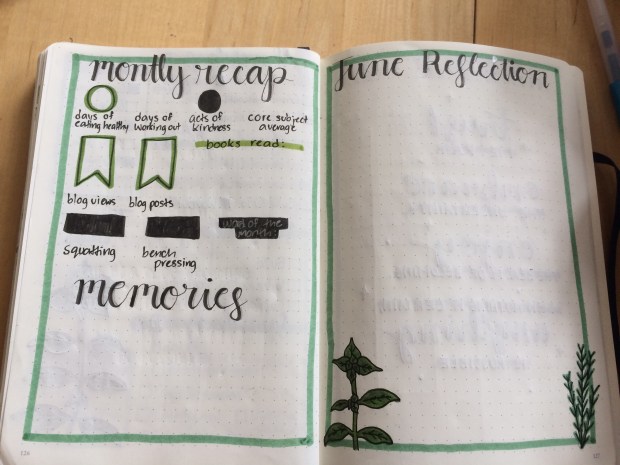 montly recap
days of eating healthy
days of working out
acts of kindness
core subject average
books read:
blog views
blog posts
squatting
bench pressing
word of the month:
memories
June Reflection